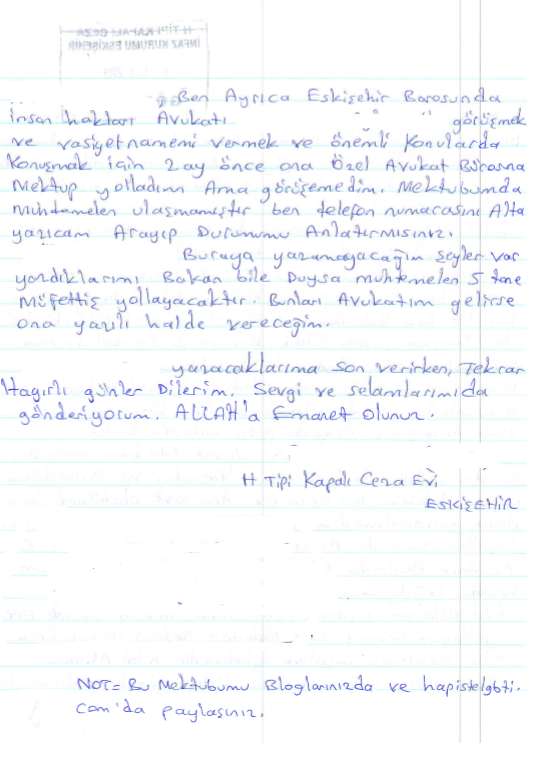 H TİPİ KAPALI CEZA
İNFAZ KURUMU ESKİŞEHİR
Ben Ayrıca Eskişehir Barosunda
insan hakları Avukatı görüşmek
ve vasiyetnamemi vermek ve önemli Konularda
Konuşmak için 2 ay önce ona Özel Avukat Bürosuna
Mektup yolladım Ama görüşemedim. Mektubumda
muhtemelen ulaşmamıştır ben telefon numarasını Alta
yazıcam Arayıp Durumumu Anlatırmısınız.
Buraya yazamayacağım şeyler var
yazdıklarımı Bakan bile Duysa muhtemelen 5 tane
Müfettiş yollayacaktır. Bunları Avukatım gelirse
ona yazılı halde vereceğim.
yazacaklarıma son verirken, Tekrar
Hayırlı günler Dilerim. Sevgi ve selamlarımıda
gönderiyorum. ALLAH'a Emanet Olunuz.
H Tipi Kapalı Ceza Evi
ESKİŞEHİR
NOT= Bu Mektubumu Bloglarınızda ve hapistelgbti.
com'da paylaşınız.